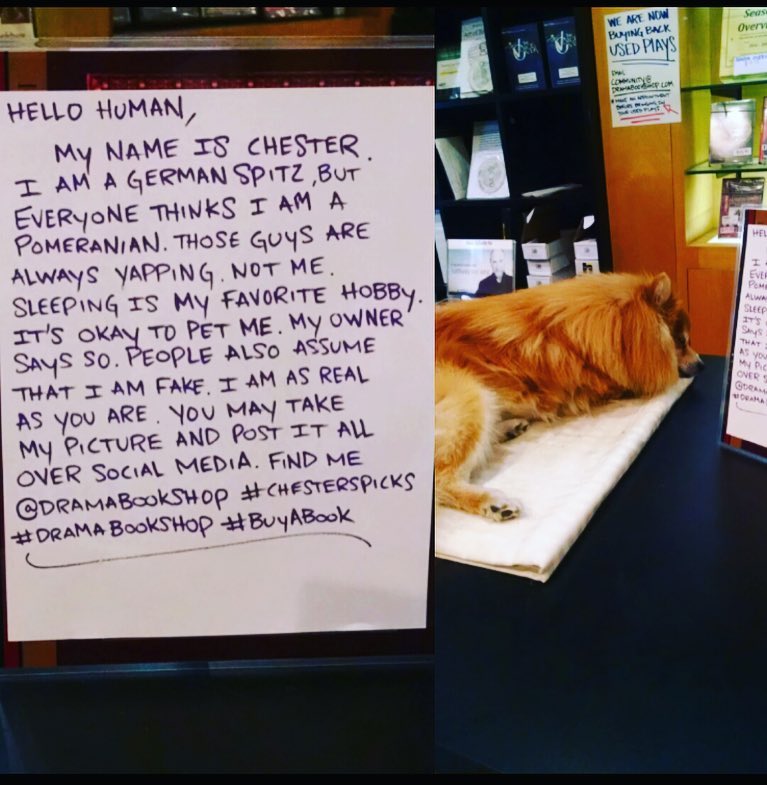 HELLO HUMAN,
MY NAME IS CHESTER.
I AM A GERMAN SPITZ, BUT
EVERYONE THINKS I AM A
POMERANIAN. THOSE GUYS ARE
ALWAYS YAPPING. NOT ME.
SLEEPING IS MY FAVORITE HOBBY.
IT'S OKAY TO PET ME. MY OWNER
SAYS SO. PEOPLE ALSO ASSUME
THAT I AM FAKE. I AM AS REAL
AS YOU ARE. YOU MAY TAKE
MY PICTURE AND POST IT ALL
OVER SOCIAL MEDIA. FIND ME
@DRAMABOOKSHOP #CHESTERSPICKS
#DRAMABOOKSHOP #BUYABOOK
WE ARE NOW
BUYING BACK
USED PLAYS
EMAIL
COMMUNITY@
DRAMABOOKSHOP.COM